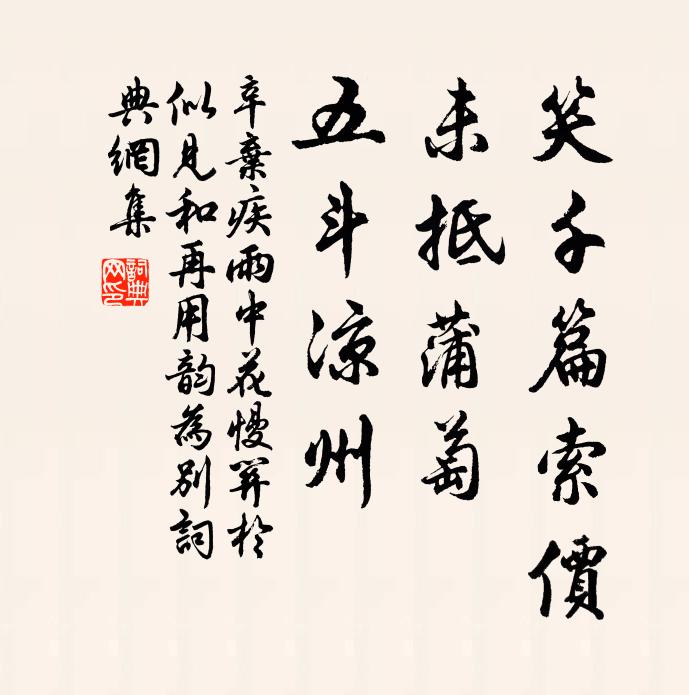 笑千篇索價
未抵蒲萄
五斗涼州
辛棄疾雨中花慢於
似見和再用韵為別詞
典網集
詞典
网印